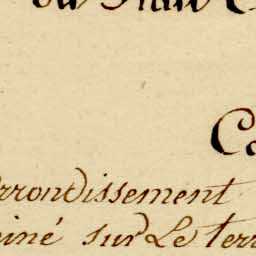 Ca
rrondissement
iné sur Le terr